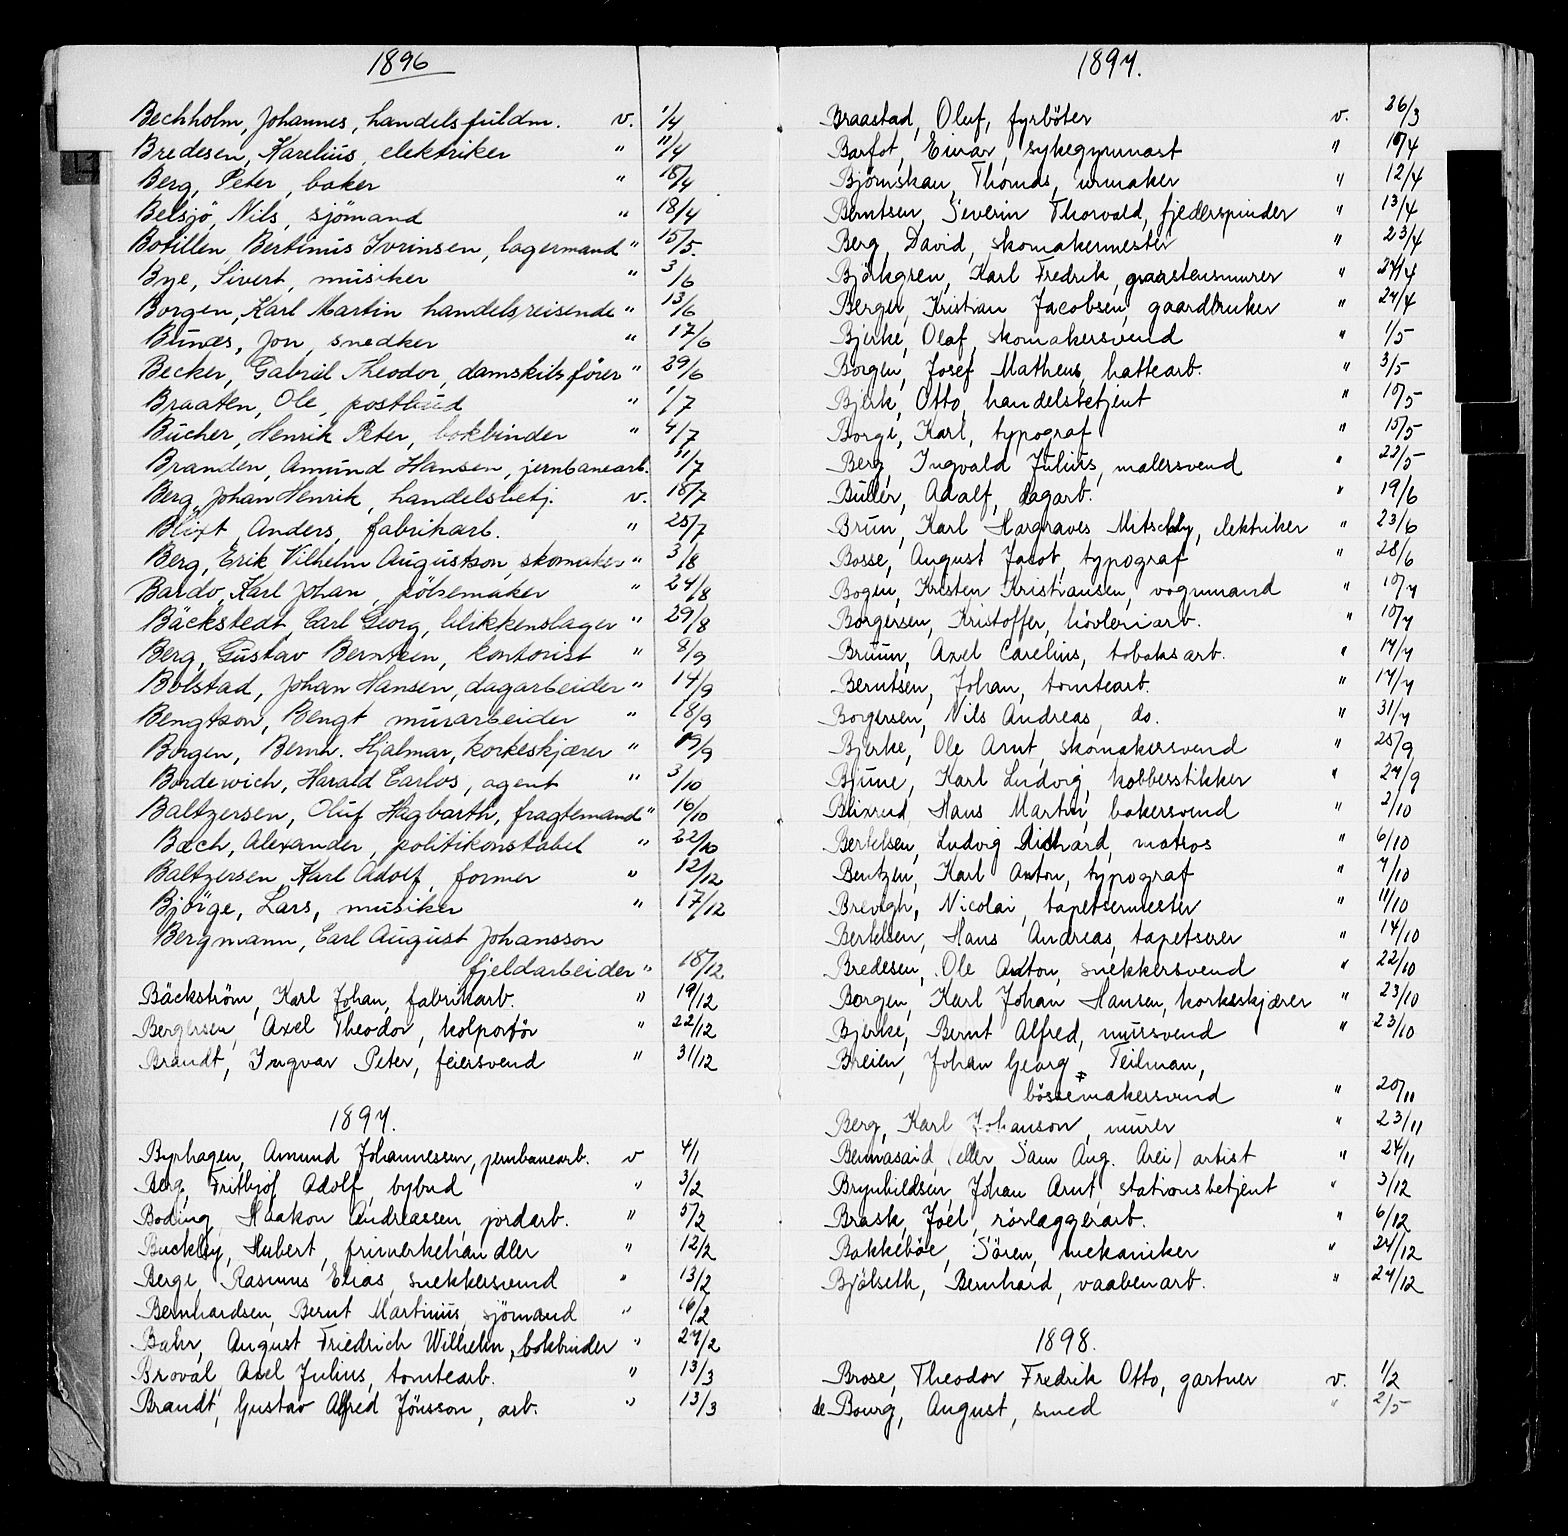 1896
Bechholm, Johannes, handelsfuldm. v. 1/4
Bredesen, Karelius, elektriker " 11/4
Berg, Peter, baker " 18/4
Belsjö, Nils, sjömand " 18/4
Botillen, Bertinus Ivrinsen, lagermand " 15/5.
Bye, Sivert, musiker " 3/6
Borgen, Karl Martin handelsreisende " 13/6
Bunæs, Jon, snedker " 17/6
Becker, Gabriel Theodor, damskibsförer " 29/6
Braaten, Ole, postbud " 1/7
Bucher, Henrik Peter, bokbinder " 4/7
Branden, Amund Hansen, jernbanearb. 11/7
Berg, Johan Henrik, handelsbetj. v. 18/7
Blixt, Anders, fabrikarb. " 25/7
Berg, Erik Vilhelm Augustson, skomaker " 3/8
Bardo, Karl Johan, pölsemaker " 24/8
Bäckstedt, Carl Georg, blikkenslager " 29/8
Berg, Gustav Berntzen, kontorist " 8/9
Bolstad, Johan Hansen, dagarbeider " 14/9
Bengtson, Bengt murarbeider " 18/9
Borgen, Bernh. Hjalmar, korkeskjærer " 19/9
Bordewich, Harald Carlos, agent " 3/10
Baltzersen, Oluf Hagbarth, fragtemand " 16/10
Bach, Alexander, politikonstabel " 22/10
Baltzersen Karl Adolf, former " 12/12
Bjöige, Lars, musiker " 17/12
Bergmann, Carl August Johansson
fjeldarbeider " 18/12
Bäckström, Karl Johan, fabrikarb. " 19/12
Bergersen, Axel Theodor, kolportör " 22/12
Brandt, Ingvar Peter, feiersvend " 31/12
1897.
Byrhagen, Amund Johannessen, jernbanearb. v 4/1
Berg, Frithjof Adolf, bybud " 3/2
Boding, Haakon Andreassen, jordarb. " 5/2
Buckley, Hubert, frimerkehandler " 12/2
Berge, Rasmus Elias, snekkersvend " 13/2
Bernhardsen, Bernt Martinius, sjömand " 16/2
Bahr, August Friedrich Wilhelm, bokbinder " 27/2
Broval, Axel Julius, tomtearb. " 13/3
Brandt, Gustav Alfred Jönsson, arb. " 13/3
1897.
Braastad, Oluf, fyrböter v. 26/3
Barfot, Einar, sykegymnast " 10/4
Björnskau, Thomas, urmaker " 12/4
Berntsen, Severin Thorvald, fjederspinder " 13/4
Berg, David, skomakermester " 23/4
Björkgren, Karl Fredrik, graastensmurer " 24/4
Berger, Kristian Jacobsen, gaardbruker " 24/4
Bjerke, Olaf, skomakersvend " 1/5
Borgen, Josef Matheus, hattearb. " 3/5
Bjerk, Otto, handelsbetjent " 10/5
Borge, Karl, typograf " 15/5
Berg, Ingvald Julius, malersvend " 22/5
Buller, Adolf, dagarb. " 19/6
Brun, Karl Hargraves Mitschly, elektriker " 23/6
Bosse, August Jacob, typograf " 28/6
Bogen, Kristen Kristiansen, vognmand " 10/7
Borgersen, Kristoffer, hövleriarb. " 10/7
Bruun, Axel Carelius, tobaksarb. " 14/7
Berntsen, Johan, tomtearb. " 17/7
Borgersen, Nils Andreas, do. " 31/7
Bjerke, Ole Arnt, skomakersvend " 25/9
Bjune, Karl Ludvig, kobberstikker " 27/9
Blixrud, Hans Martin, bakersvend " 2/10
Bertelsen, Ludvig Richard, matros " 6/10
Bentzen, Karl Anton, typograf " 7/10
Brevigh, Nicolai, tapetsermester " 11/10
Bertelsen, Hans Andreas, tapetserer " 14/10
Bredesen, Ole Anton, snekkersvend " 22/10
Borgen, Karl Johan Hansen, korkeskjærer " 23/10
Bjerke, Bernt Alfred, mursvend " 23/10
Breien, Johan Georg Teilman,
bössemakersvend " 20/11
Berg, Karl Johanson, murer " 23/11
Bennasaid, (eller Sam Aug. Arei) artist " 24/11
Brynhildsen, Johan Arnt, stationsbetjent " 3/12
Brask, Joel, rörlæggerarb. " 6/12
Bakkeböe, Sören, mekaniker " 24/12
Bjölseth, Bernhard, vaabenarb. " 24/12
1898.
Brose, Theodor Fredrik Otto, gartner v. 1/2
de Bourg, August, smed " 2/5